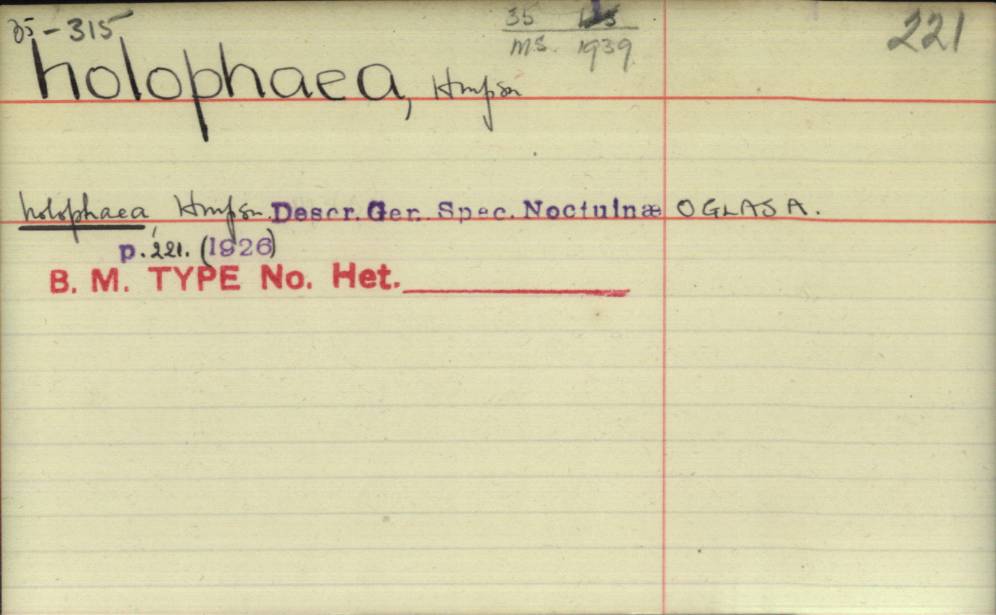 35-315
35
MS. 1939
221
holophaea, Hmpsn
holophaea, Hmpsn. Descr. Gen. Spec. Noctuinæ OGLASA.
p. 221. (1926)
B. M. TYPE No. Het.